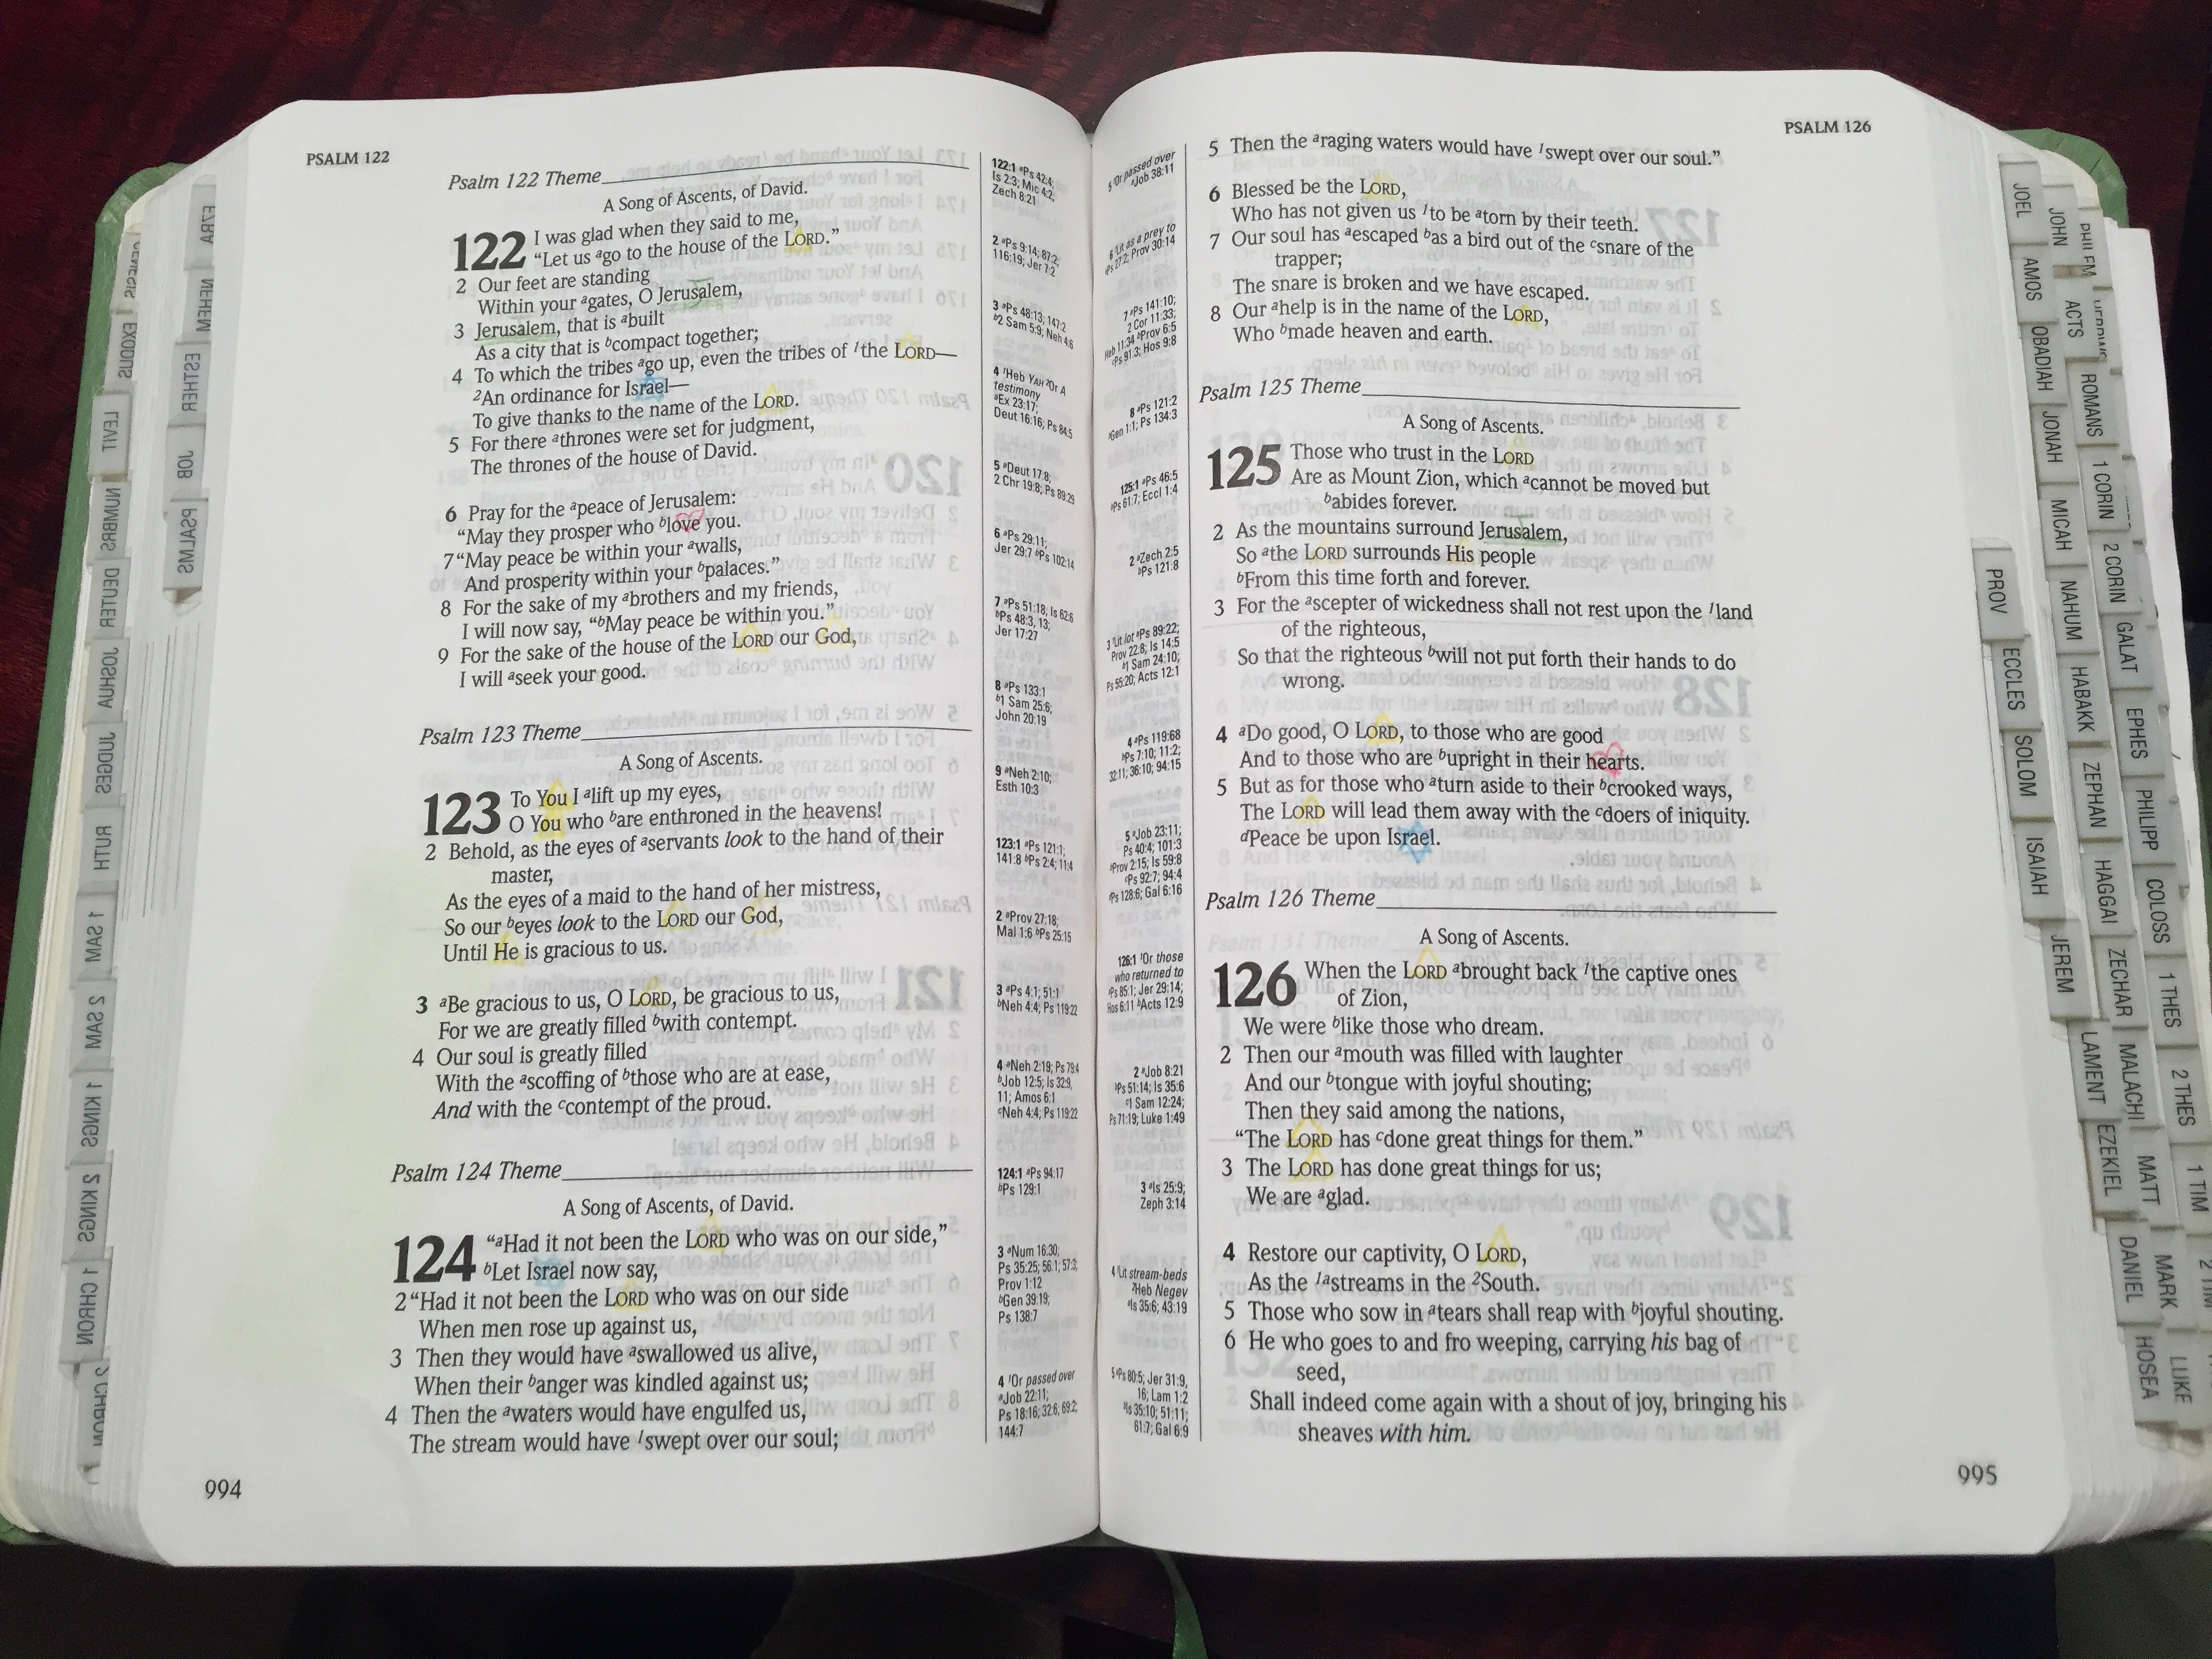 PSALM 122
Psalm 122 Theme
A Song of Ascents, of David.
122 I was glad when they said to me,
“Let us ᵃgo to the house of the LORD.”
2 Our feet are standing
Within your ᵃgates, O Jerusalem,
3 Jerusalem, that is ᵃbuilt
As a city that is ᵇcompact together;
4 To which the tribes ᵃgo up, even the tribes of ¹the LORD—
²An ordinance for Israel—
To give thanks to the name of the LORD.
5 For there ᵃthrones were set for judgment,
The thrones of the house of David.
6 Pray for the ᵃpeace of Jerusalem:
“May they prosper who ᵇlove you.
7 “May peace be within your ᵃwalls,
And prosperity within your ᵇpalaces.”
8 For the sake of my ᵃbrothers and my friends,
I will now say, “ᵇMay peace be within you.”
9 For the sake of the house of the LORD our God,
I will ᵃseek your good.
Psalm 123 Theme
A Song of Ascents.
123 To You I ᵃlift up my eyes,
O You who ᵇare enthroned in the heavens!
2 Behold, as the eyes of ᵃservants look to the hand of their
master,
As the eyes of a maid to the hand of her mistress,
So our ᵇeyes look to the LORD our God,
Until He is gracious to us.
3 ᵃBe gracious to us, O LORD, be gracious to us,
For we are greatly filled ᵇwith contempt.
4 Our soul is greatly filled
With the ᵃscoffing of ᵇthose who are at ease,
And with the ᶜcontempt of the proud.
Psalm 124 Theme
A Song of Ascents, of David.
124 “ᵃHad it not been the LORD who was on our side,”
ᵇLet Israel now say,
2 “Had it not been the LORD who was on our side
When men rose up against us,
3 Then they would have ᵃswallowed us alive,
When their ᵇanger was kindled against us;
4 Then the ᵃwaters would have engulfed us,
The stream would have ¹swept over our soul;
994
122:1 ᵃPs 42:4;
Is 2:3; Mic 4:2;
Zech 8:21
2 ᵃPs 9:14; 87:2;
116:19; Jer 7:2
3 ᵃPs 48:13; 147:2
ᵇ2 Sam 5:9; Neh 4:6
4 ¹Heb YAH ²Or A
testimony
ᵃEx 23:17;
Deut 16:16; Ps 84:5
5 ᵃDeut 17:8;
2 Chr 19:8; Ps 89:29
6 ᵃPs 29:11;
Jer 29:7 ᵇPs 102:14
7 ᵃPs 51:18; Is 62:6
ᵇPs 48:3, 13;
Jer 17:27
8 ᵃPs 133:1
ᵇ1 Sam 25:6;
John 20:19
9 ᵃNeh 2:10;
Esth 10:3
123:1 ᵃPs 121:1;
141:8 ᵇPs 2:4; 11:4
2 ᵃProv 27:18;
Mal 1:6 ᵇPs 25:15
3 ᵃPs 4:1; 51:1
ᵇNeh 4:4; Ps 119:22
4 ᵃNeh 2:19; Ps 79:4
ᵇJob 12:5; Is 32:9,
11; Amos 6:1
ᶜNeh 4:4; Ps 119:22
124:1 ᵃPs 94:17
ᵇPs 129:1
3 ᵃNum 16:30;
Ps 35:25; 56:1; 57:3;
Prov 1:12
ᵇGen 39:19;
Ps 138:7
4 ¹Or passed over
ᵃJob 22:11;
Ps 18:16; 32:6; 69:2;
144:7
PSALM 126
5 ¹Or passed over
ᵃJob 38:11
6 ¹Lit as a prey to
ᵃPs 27:2; Prov 30:14
7 ᵃPs 141:10;
2 Cor 11:33;
Heb 11:34 ᵇProv 6:5
ᶜPs 91:3; Hos 9:8
8 ᵃPs 121:2
ᵇGen 1:1; Ps 134:3
125:1 ᵃPs 46:5
ᵇPs 61:7; Eccl 1:4
2 ᵃZech 2:5
ᵇPs 121:8
3 ¹Lit lot ᵃPs 89:22;
Prov 22:8; Is 14:5
ᵇ1 Sam 24:10;
Ps 55:20; Acts 12:1
4 ᵃPs 119:68
ᵇPs 7:10; 11:2;
32:11; 36:10; 94:15
5 ᵃJob 23:11;
Ps 40:4; 101:3
ᵇProv 2:15; Is 59:8
ᶜPs 92:7; 94:4
ᵈPs 128:6; Gal 6:16
126:1 ¹Or those
who returned to
ᵃPs 85:1; Jer 29:14;
Hos 6:11 ᵇActs 12:9
2 ᵃJob 8:21
ᵇPs 51:14; Is 35:6
ᶜ1 Sam 12:24;
Ps 71:19; Luke 1:49
3 ᵃIs 25:9;
Zeph 3:14
4 ¹Lit stream-beds
²Heb Negev
ᵃIs 35:6; 43:19
5 ᵃPs 80:5; Jer 31:9,
16; Lam 1:2
ᵇIs 35:10; 51:11;
61:7; Gal 6:9
5 Then the ᵃraging waters would have ¹swept over our soul.”
6 Blessed be the LORD,
Who has not given us ¹to be ᵃtorn by their teeth.
7 Our soul has ᵃescaped ᵇas a bird out of the ᶜsnare of the
trapper;
The snare is broken and we have escaped.
8 Our ᵃhelp is in the name of the LORD,
Who ᵇmade heaven and earth.
Psalm 125 Theme
A Song of Ascents.
125 Those who trust in the LORD
Are as Mount Zion, which ᵃcannot be moved but
ᵇabides forever.
2 As the mountains surround Jerusalem,
So ᵃthe LORD surrounds His people
ᵇFrom this time forth and forever.
3 For the ᵃscepter of wickedness shall not rest upon the ¹land
of the righteous,
So that the righteous ᵇwill not put forth their hands to do
wrong.
4 ᵃDo good, O LORD, to those who are good
And to those who are ᵇupright in their hearts.
5 But as for those who ᵃturn aside to their ᵇcrooked ways,
The LORD will lead them away with the ᶜdoers of iniquity.
ᵈPeace be upon Israel.
Psalm 126 Theme
A Song of Ascents.
126 When the LORD ᵃbrought back ¹the captive ones
of Zion,
We were ᵇlike those who dream.
2 Then our ᵃmouth was filled with laughter
And our ᵇtongue with joyful shouting;
Then they said among the nations,
“The LORD has ᶜdone great things for them.”
3 The LORD has done great things for us;
We are ᵃglad.
4 Restore our captivity, O LORD,
As the ¹ᵃstreams in the ²South.
5 Those who sow in ᵃtears shall reap with ᵇjoyful shouting.
6 He who goes to and fro weeping, carrying his bag of
seed,
Shall indeed come again with a shout of joy, bringing his
sheaves with him.
995
EXODUS
LEVIT
NUMBR
DEUTER
JOSHUA
JUDGES
RUTH
1 SAM
2 SAM
1 KINGS
2 KINGS
1 CHRON
2 CHRON
EZRA
NEHEM
ESTHER
JOB
PSALMS
PROV
ECCLES
SOLOM
ISAIAH
JEREM
LAMENT
EZEKIEL
DANIEL
HOSEA
JOEL
AMOS
OBADIAH
JONAH
MICAH
NAHUM
HABAKK
ZEPHAN
HAGGAI
ZECHAR
MALACHI
MATT
MARK
LUKE
JOHN
ACTS
ROMANS
1 CORIN
2 CORIN
GALAT
EPHES
PHILIPP
COLOSS
1 THES
2 THES
1 TIM
2 TIM
PHILEM